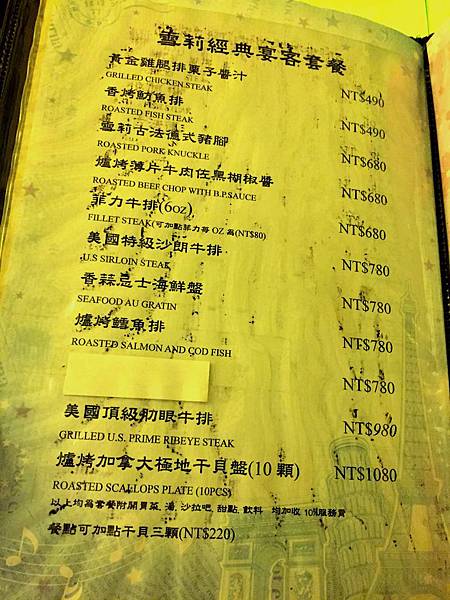 雪莉經典宴客套餐
黃金雞腿排栗子醬汁
GRILLED CHICKEN STEAK NT$490
香烤魴魚排
ROASTED FISH STEAK NT$490
雪莉古法德式豬腳
ROASTED PORK KNUCKLE NT$680
爐烤薄片牛肉佐黑楜椒醬
ROASTED BEEF CHOP WITH B.P.SAUCE NT$680
菲力牛排(6oz)
FILLET STEAK(可加點菲力每 OZ 為(NT$80) NT$680
美國特級沙朗牛排
U.S SIRLOIN STEAK NT$780
香蒜忌士海鮮盤
SEAFOOD AU GRATIN NT$780
爐烤鱈魚排
ROASTED SALMON AND COD FISH NT$780
NT$780
美國頂級肋眼牛排
GRILLED U.S. PRIME RIBEYE STEAK NT$980
爐烤加拿大極地干貝盤(10 顆) NT$1080
ROASTED SCALLOPS PLATE (10PCS)
以上均為套餐附開胃菜, 湯, 沙拉吧, 甜點, 飲料 均加收 10%服務費
餐點可加點干貝三顆(NT$220)